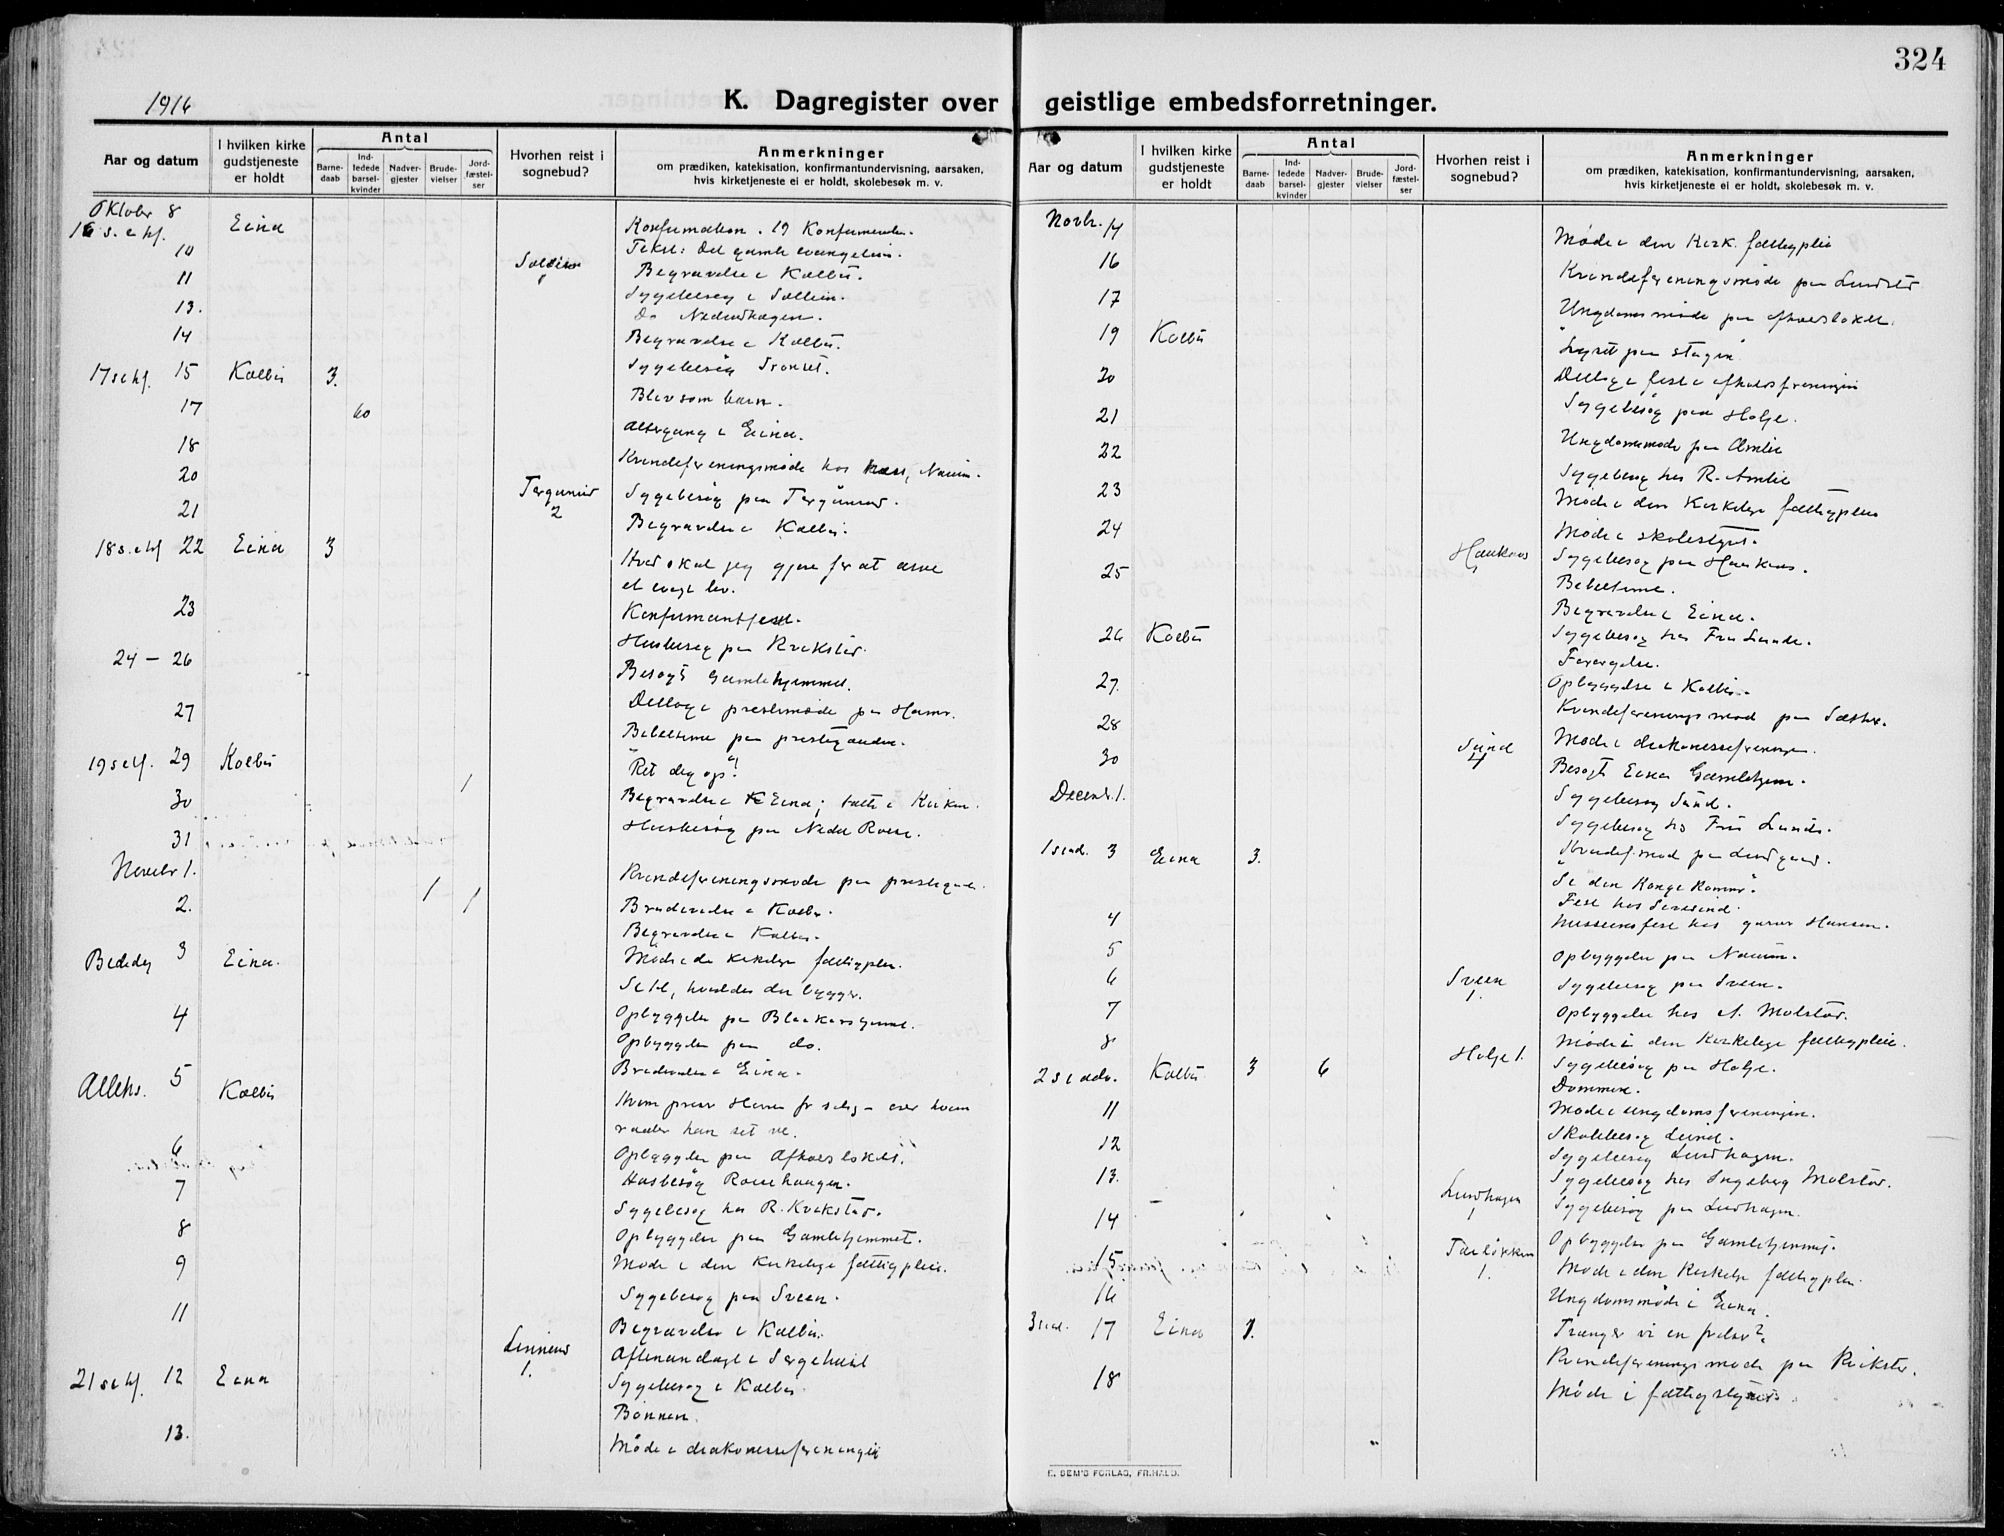 324
1916
K. Dagregister over geistlige embedsforretninger.
Aar og datum
I hvilken kirke gudstjeneste er holdt
Antal
Barne-daab
Ind-ledede barsel-kvinder
Nadver-gjester
Brude-vielser
Jord-fæstel-ser
Hvorhen reist i sognebud?
Anmerkninger
om prædiken, katekisation, konfirmantundervisning, aarsaken,
hvis kirketjeneste ei er holdt, skolebesøk m. v.
Oktobr 8
16 s. e hf. Eina Konfirmation. 19 Konfirmander.
10 Tekst: Det gamle evangelium.
11 Begravelse i Kolbu.
Sygebesøg i
13. Do
14 Begravelse i Kolbu.
17 s e hf. 15 Kolbu 3. Sygebesøg
Bliv som barn.
17 60 Altergang i Eina.
18
20 Kvindeforeningsmøde hos Narum.
21 2 Sygebesøg paa
Begravelse i Kolbu.
18 s. e hf 22 Eina 3 Hvad skal jeg gjøre for at arve
et evigt liv.
23 Konfirmantfest.
Husbesøg paa Kvikstad.
24 – 26 Besøgt Gamlehjemmet.
27 Deltog i prestemøde paa Hamar.
Bibeltime paa prestegaarden.
19 s e hf. 29 Kolbu "Ret dig op"!
30 1 Begravelse i Eina; talte i Kirken.
31 Husbesøg paa Nedre
Novebr 1. Kvindeforeningsmøde paa prestegaard.
2. 1 1 Brudevielse i Kolbu.
Begravelse i Kolbu.
Bededag 3 Eina. Møde i de kirkelige fattigpleie.
Se til, hvorledes du bygger.
4 Opbyggelse paa
Opbyggelse paa do.
Allehs. 5 Kolbu Brudevielse i Eina.
Hvem Herren for salig – over hvem
raaber han sit ve.
6 Opbyggelse paa Afholdslokalet.
7 Husbesøg
Sygebesøg hos R. Kvikstad.
8 Opbyggelse paa Gamlehjemmet.
9 Møde i den kirkelige fattigpleie.
Sygebesøg paa Sveen.
11 Begravelse i Kolbu.
1. Aftenandagt i
21 s e hf. 12 Eina Sygebesøg i Kolbu
Bønnen.
13. Møde i diakonisseforeningen
Aar og datum
I hvilken kirke gudstjeneste er holdt
Antal
Barne-daab
Ind-ledede barsel-kvinder
Nadver-gjester
Brude-vielser
Jord-fæstel-ser
Hvorhen reist i sognebud?
Anmerkninger
om prædiken, katekisation, konfirmantundervisning, aarsaken,
hvis kirketjeneste ei er holdt, skolebesøk m. v.
Novbr. 14 Møde i den Kirk. fattigpleie
16 Kvindeforeningsmøde paa
17 Ungdomsmøde paa afholdslokalet.
19 Kolbu "Lyset paa stagen"
20 Deltog i fest i afholdsforeningen
21 Sygebesøg paa Holje.
22 Ungdomsmøde paa Amlie
Sygebesøg hos R. Amlie
23 Møde i den Kirkelige fattigpleie
24 Møde i skolestyret.
Haukaas 1 Sygebesøg paa Haukaas.
25 Bibeltime.
Begravelse i Eina.
26 Kolbu Sygebesøg hos Fru Lunde.
27. Opbyggelse i Kolbu.
Kvindeforeningsmøde paa Sæther.
28 Møde i diakonisseforeningen.
30 Sund 4 Besøgt Eina Gamlehjem.
Decembr. 1. Sygebesøg Sund.
Sygebesøg hos Fru Lunde.
1 s i ad. 3 Eina 3. Kvindef. møde paa
"Se din Konge kommer".
Fest hos
4 Missionsfest hos Hansen.
5 Opbyggelse paa Narum.
6 Sveen 1. Sygebesøg paa Sveen.
7 Opbyggelse hos A. Molstad.
8 Møde i den Kirkelige fattigpleie.
Holje 1. Sygebesøg paa Holje.
2 s i adv. Kolbu 3 6 Dommen.
11 Møde i ungdomsforeningen.
12 Skolebesøg Lund.
Sygebesøg Lundhagen.
13. Sygebesøg hos Ingeborg Molstad.
14 Lundhagen 1 Sygebesøg paa Lundhagen.
15 1. Opbyggelse paa Gamlehjemmet.
Møde i den Kirkelige fattigpleie.
16 Ungdomsmøde i Eina.
3 s i ad. 17 Eina 1. Trænger vi en frelser?
Kvindeforeningsmøde paa Kvikstad.
18 Møde i fattigstyret.
E. SEM'S FORLAG, FR.HALD.